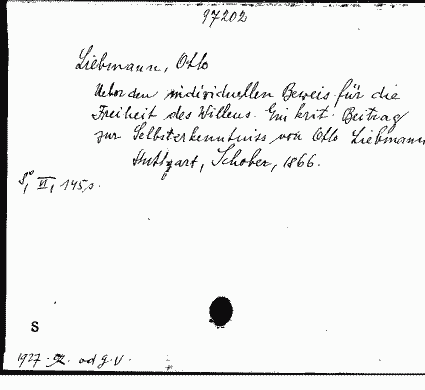 97202
Liebmann, Otto
Ueber den individuellen Beweis für die
Freiheit des Willens. Ein krit. Beitrag
zur Selbsterkenntniss von Otto Liebmann
Stuttgart, Schober, 1866.
8°, VI, 145 s.
S
1927. od g. V.